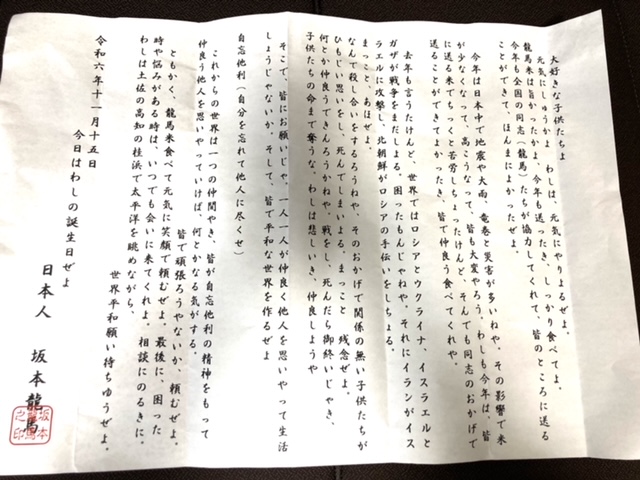 大好きな子供たちよ
元気にしゅうかよ わしは、元気にやりよるぜよ。
龍馬米は旨かったかよ、今年も送ったき、しっかり食べてよ。
今年も全国の同志(龍馬)たちが協力してくれて、皆のところに送る
ことができて、ほんまによかったぜよ。
今年は日本中で地震や大雨、竜巻と災害が多いねや、その影響で米
が少なくなって、高こうなって、皆も大変やろう、わしも今年は、皆
に送る米でちっくと苦労しちょったけんど、そんでも同志のおかげで
送ることができてよかったき、皆で仲良う食べてくれや。
去年も言うたけんど、世界ではロシアとウクライナ、イスラエルと
ガザが戦争をまだしよる。困ったもんじゃねや、それにイランがイス
ラエルに攻撃し、北朝鮮がロシアの手伝いをしちょる。
まっこと、あほぜよ。
なんで殺し合いをするろうねや、そのおかげで関係の無い子供たちが
ひもじい思いをし、死んでしまいよる。まっこと 残念ぜよ。
何とか仲良うできんろうかねや、戦をし、死んだら御終いじゃき、
子供たちの命まで奪うな、わしは悲しいき、仲良しようや
そこで、皆にお願いじゃ、一人一人が仲良く他人を思いやって生活
しようじゃないか、そして、皆で平和な世界を作るぜよ
自忘他利(自分を忘れて他人に尽くせ)
これからの世界は一つの仲間やき、皆が自忘他利の精神をもって
仲良う他人を思いやっていけば、何とかなる気がする。
皆で頑張ろうやないか、頼むぜよ。
ともかく、龍馬米食べて元気に笑顔で頼むぜよ。最後に、困った
時や悩みがある時は、いつでも会いに来てくれよ。相談にのるきに。
わしは土佐の高知の桂浜で太平洋を眺めながら、
世界平和願い待ちゆうぜよ。
令和六年十一月十五日
今日はわしの誕生日ぜよ
日本人 坂本龍馬
坂本龍馬之印